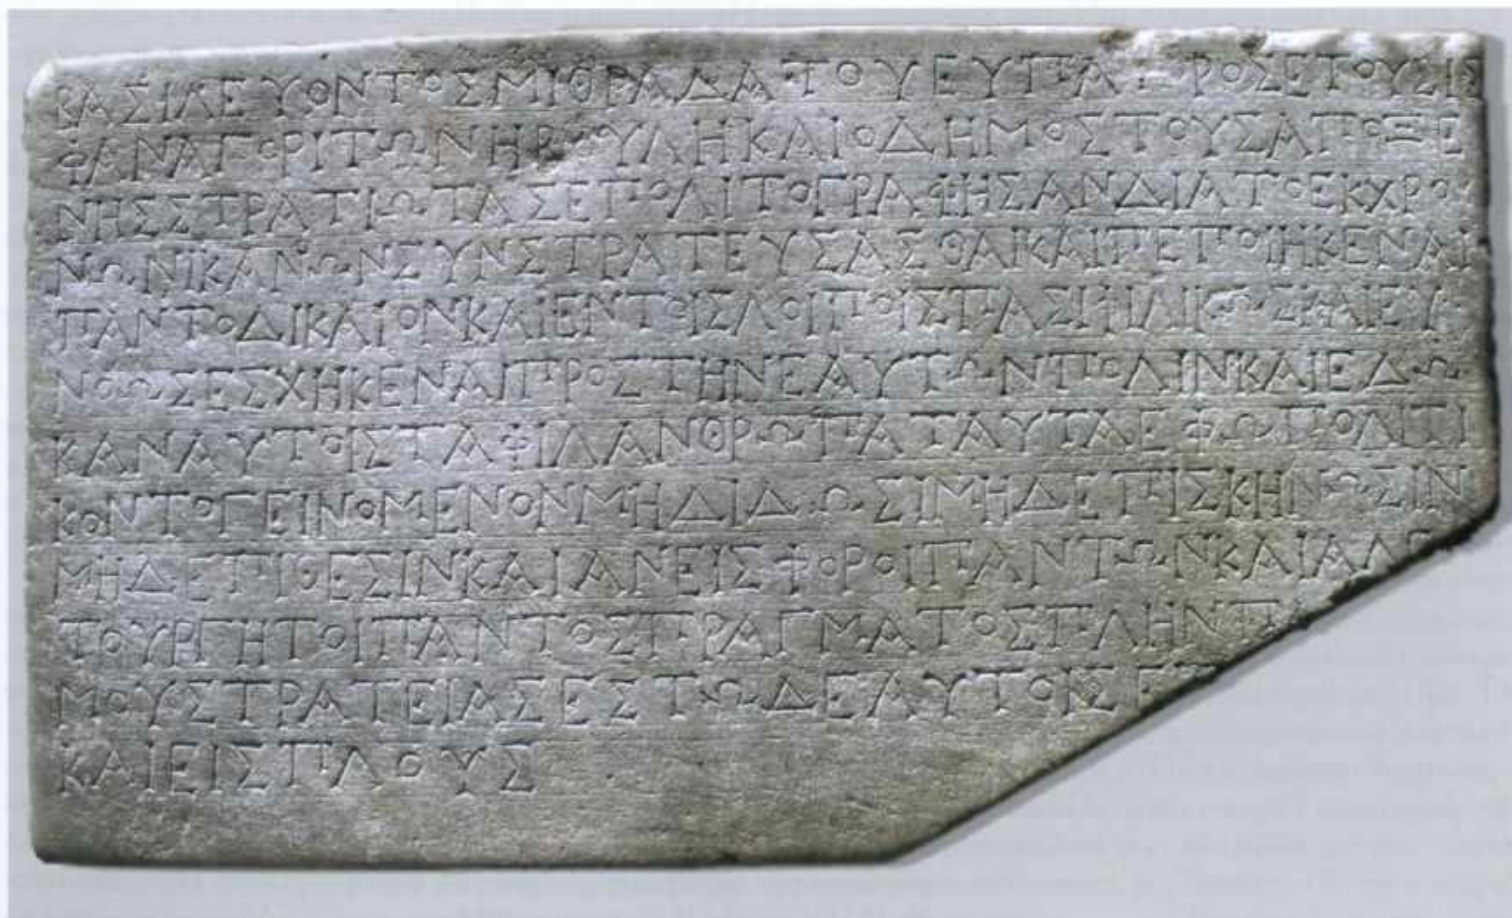 ΒΑΣΙΛΕΥΟΝΤΟΣΜΙΘΡΑΔΑΤΟΥΕΥΠΑΤΡΟΣΕΤΟΥΣΙΣ
ΦΑΝΑΓΟΡΙΤΩΝΗΒΟΥΛΗΚΑΙΟΔΗΜΟΣΤΟΥΣΑΠΟΞΕ
ΝΗΣΣΤΡΑΤΙΩΤΑΣΕΠΟΛΙΤΟΓΡΑΦΗΣΑΝΔΙΑΤΟΕΚΧΡΟ
ΝΩΝΙΚΑΝΩΝΣΥΝΣΤΡΑΤΕΥΣΑΣΘΑΙΚΑΙΠΕΠΟΙΗΚΕΝΑΙ
ΠΑΝΤΟΔΙΚΑΙΟΝΚΑΙΕΝΤΟΙΣΛΟΙΠΟΙΣΠΑΣΙΦΙΛΙΚΩΣΚΑΙΕΥ
ΝΟΩΣΕΣΧΗΚΕΝΑΙΠΡΟΣΤΗΝΕΑΥΤΩΝΠΟΛΙΝΚΑΙΕΔΩ
ΚΑΝΑΥΤΟΙΣΤΑΦΙΛΑΝΘΡΩΠΑΤΑΥΤΑΕΦΩΠΟΛΙΤΙ
ΚΟΝΤΟΓΕΙΝΟΜΕΝΟΝΜΗΔΙΔΩΣΙΜΗΔΕΠΙΣΚΗΝΩΣΙΝ
ΜΗΔΕΠΙΘΕΣΙΝΚΑΙΑΝΕΙΣΦΟΡΟΙΠΑΝΤΩΝΚΑΙΑΛΕ
ΤΟΥΡΓΗΤΟΙΠΑΝΤΟΣΠΡΑΓΜΑΤΟΣΠΛΗΝΠ
ΜΟΥΣΤΡΑΤΕΙΑΣΕΣΤΩΔΕΑΥΤΟΙΣΕΠ
ΚΑΙΕΙΣΠΛΟΥΣ